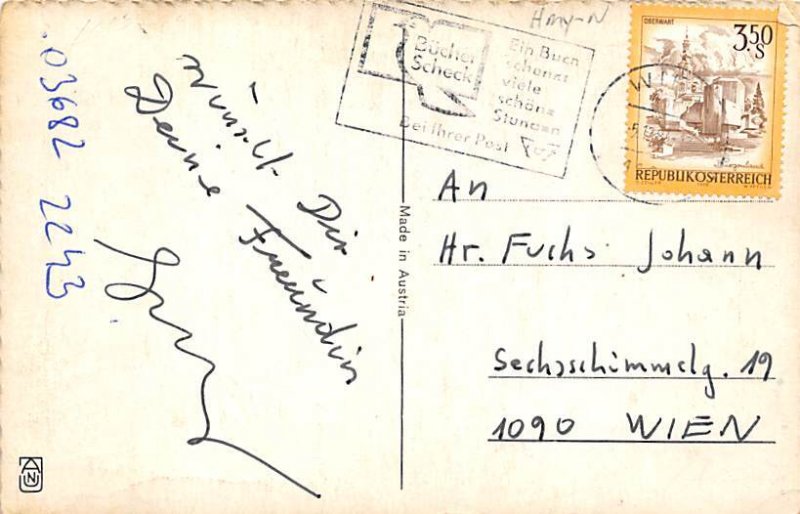 wünscht Dir
Deine Freundin
03682 2243
Made in Austria
Hmy-N
Bücher
Scheck
Ein Buch
schenkt
viele
schöne
Stunden
Bei Ihrer Post
OBERWART
3.50
S
REPUBLIK ÖSTERREICH
WI
An
Hr. Fuchs Johann
Sechsschimmelg. 19
1090 WIEN